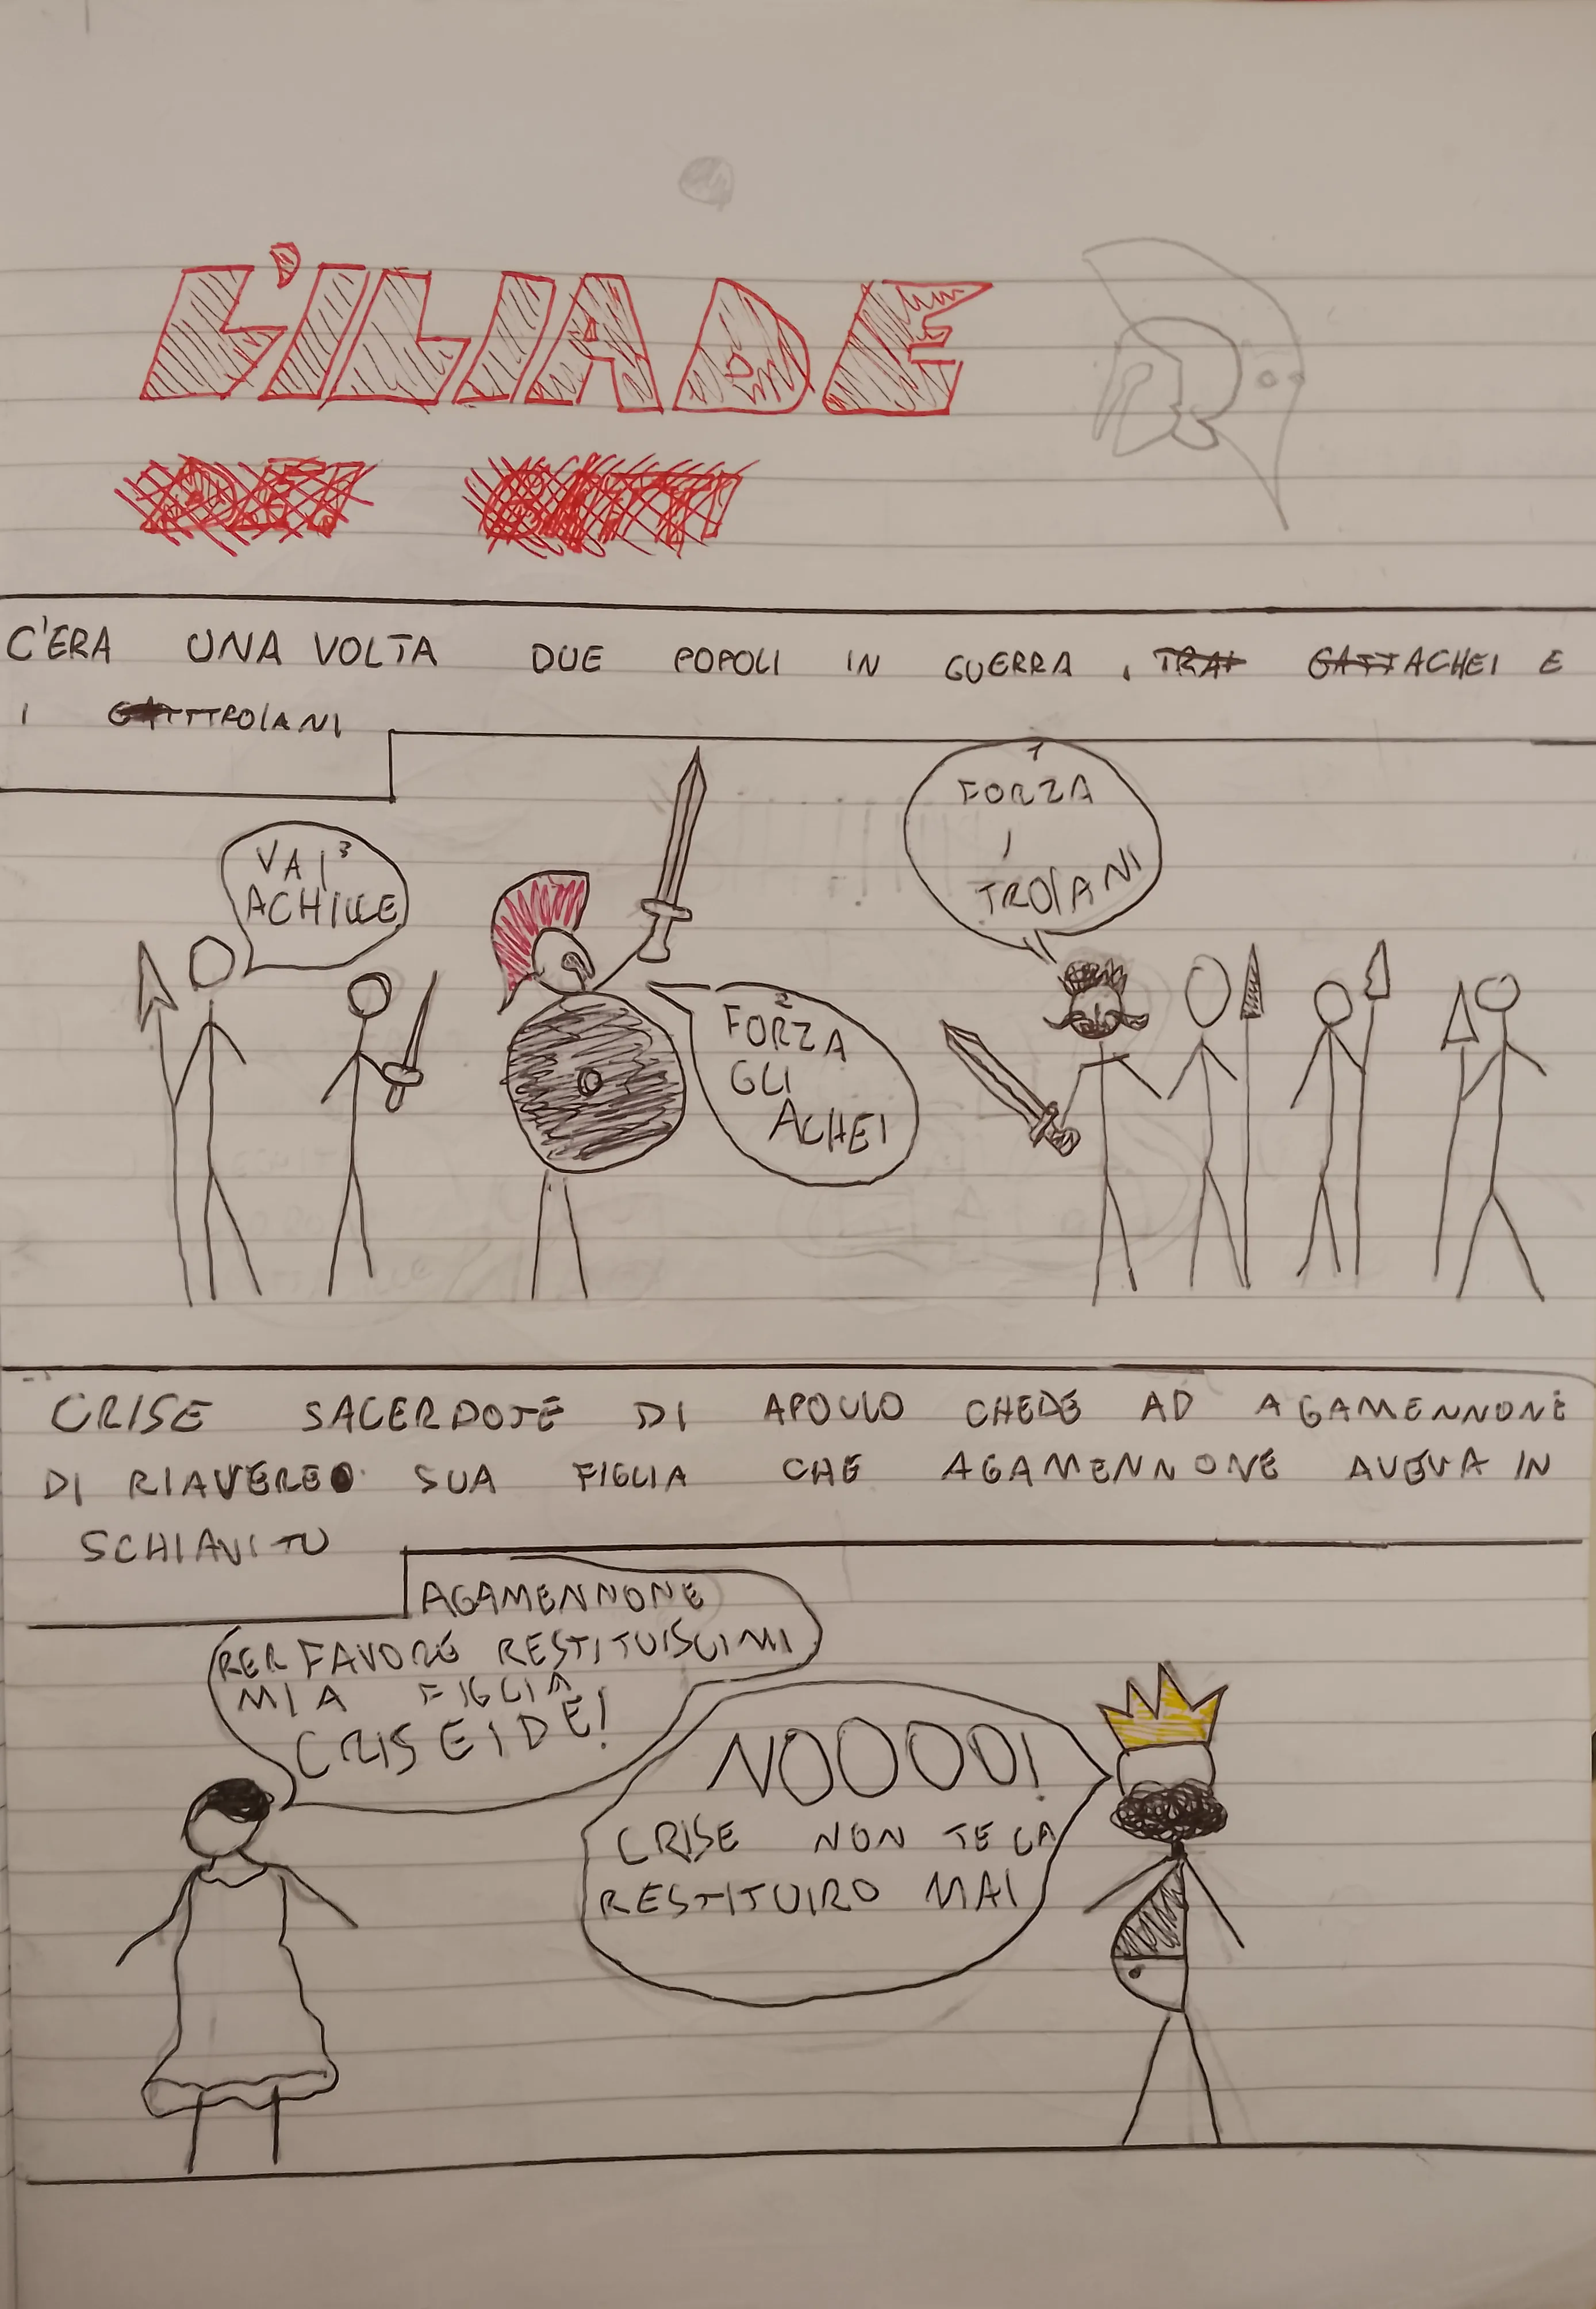 L'ILIADE
C'ERA UNA VOLTA DUE POPOLI IN GUERRA, ACHEI E
I TROIANI
1
FORZA
I
TROIANI
2
FORZA
GLI
ACHEI
VAI 3
ACHILLE
CRISE SACERDOTE DI APOLLO CHEDE AD AGAMENNONE
DI RIAVERE SUA FIGLIA CHE AGAMENNONE AVEVA IN
SCHIAVITU
AGAMENNONE
PER FAVORE RESTITUISCIMI
MIA FIGLIA
CRISEIDE!
NOOOO!
CRISE NON TE LA
RESTITUIRO MAI